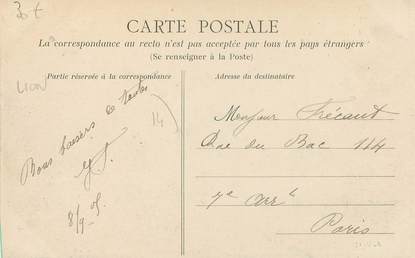 3 €
CARTE POSTALE
La correspondance au recto n'est pas acceptée par tous les pays étrangers
(Se renseigner à la Poste)
Partie réservée à la correspondance
Adresse du destinataire
LION
14
Bons baisers de toutes
8/9 05
Monsieur Frécaut
Rue du Bac 114
7e arrt
Paris